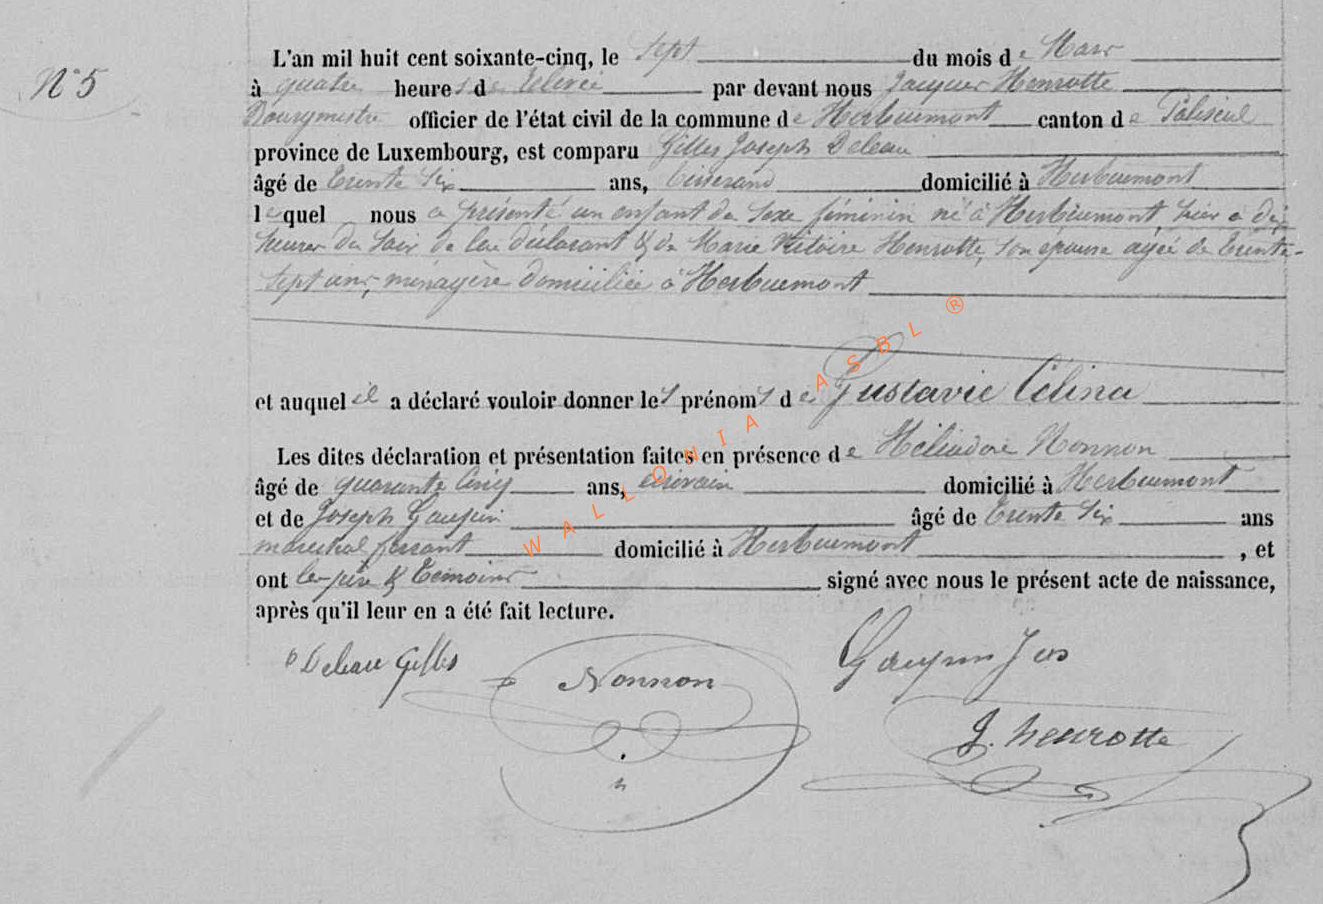 N° 5
L'an mil huit cent soixante-cinq, le sept du mois de Mars
à quatre heures de relevée par devant nous Jacques Henrotte
Bourgmestre officier de l'état civil de la commune de Herbeumont canton de Paliseul
province de Luxembourg, est comparu Gilles Joseph Deleau
âgé de trente six ans, tisserand domicilié à Herbeumont
lequel nous a présenté un enfant du sexe féminin né à Herbeumont hier à dix
heures du soir de lui déclarant & de Marie Victoire Henrotte, son épouse agée de trente-
sept ans, ménagère domiciliée à Herbeumont
et auquel il a déclaré vouloir donner les prénoms de Gustavie Célina
Les dites déclaration et présentation faites en présence de Héliodore Nonnon
âgé de quarante cinq ans, écrivain domicilié à Herbeumont
et de Joseph Gaupin âgé de trente six ans
maréchal ferrant domicilié à Herbeumont, et
ont le père & témoins signé avec nous le présent acte de naissance,
après qu'il leur en a été fait lecture.
Deleau Gilles
Nonnon
Gaupin Jos
J. henrotte
WALLONIA ASBL ®